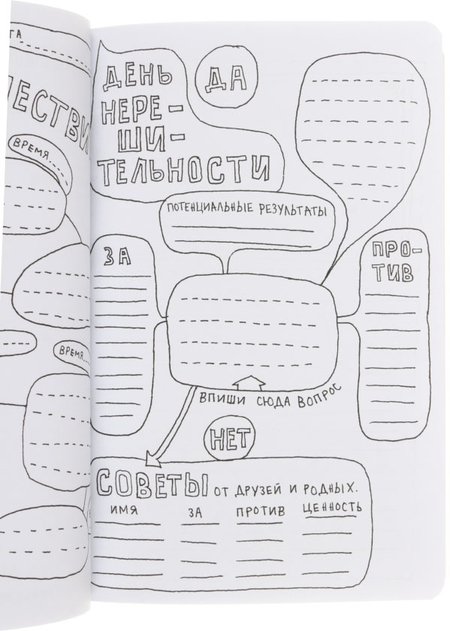 ТА
ЕСТВИ
ВРЕМЯ
ВРЕМЯ
ДЕНЬ
НЕРЕ-
ШИ-
ТЕЛЬНОСТИ
ДА
ПОТЕНЦИАЛЬНЫЕ РЕЗУЛЬТАТЫ
ЗА
ПРО-
ТИВ
ВПИШИ СЮДА ВОПРОС
НЕТ
СОВЕТЫ ОТ ДРУЗЕЙ И РОДНЫХ.
ИМЯ ЗА ПРОТИВ ЦЕННОСТЬ